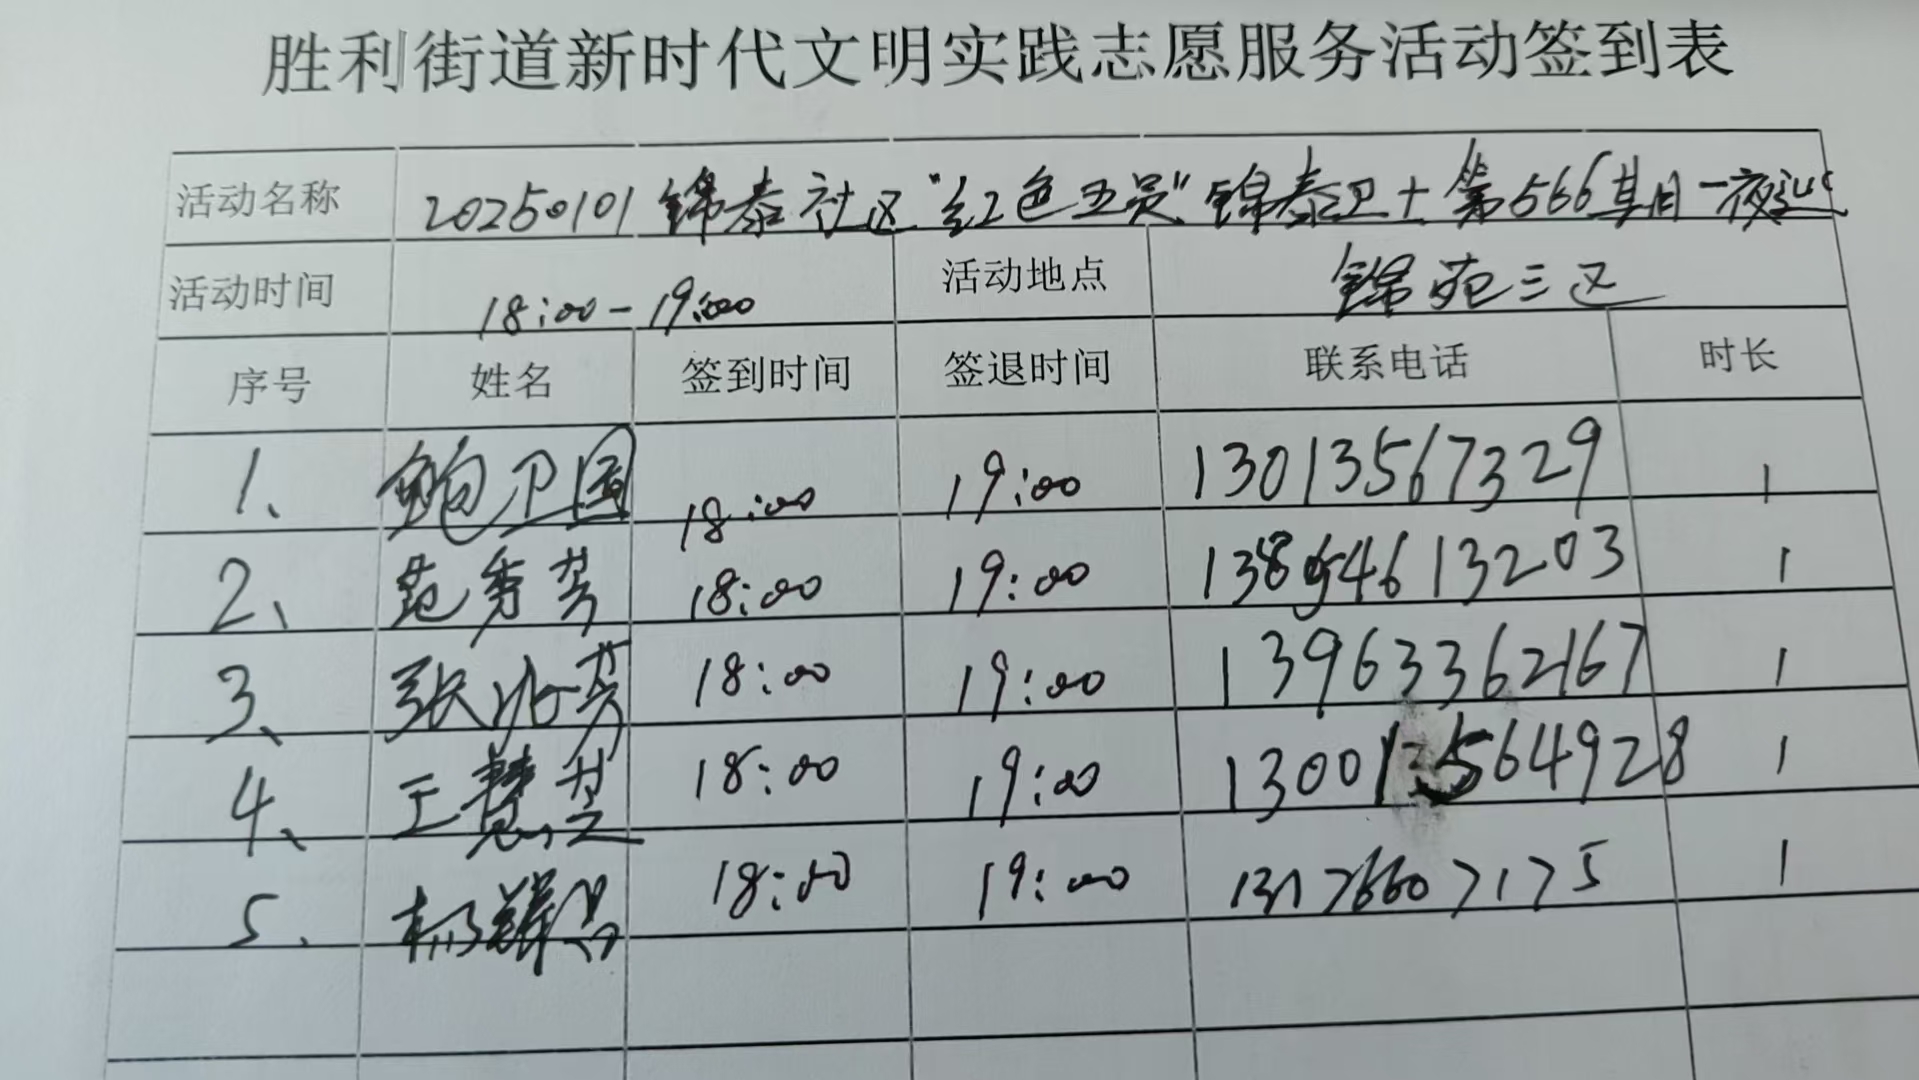 胜利街道新时代文明实践志愿服务活动签到表
活动名称 20250101锦泰社区"红色五员"锦泰卫士第566期一夜巡
活动时间 18:00-19:00 活动地点 锦苑三区
序号 姓名 签到时间 签退时间 联系电话 时长
1、 鲍卫国 18:00 19:00 13013567329 1
2、 范秀芳 18:00 19:00 13854613203 1
3、 张冰芳 18:00 19:00 13963362167 1
4、 王慧芝 18:00 19:00 13001564928 1
5. 杨 18:00 19:00 13176607175 1